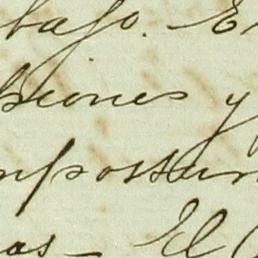 bajo. E
biones y
mpostur
as - El